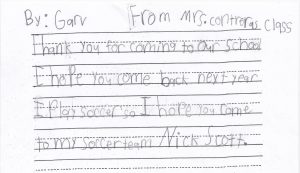 By: Garv From Mrs. contreras class
Thank you for coming to our school
I hope you come back next year
I Play soccer so I hope you come
to my soccer team Nick Scott.